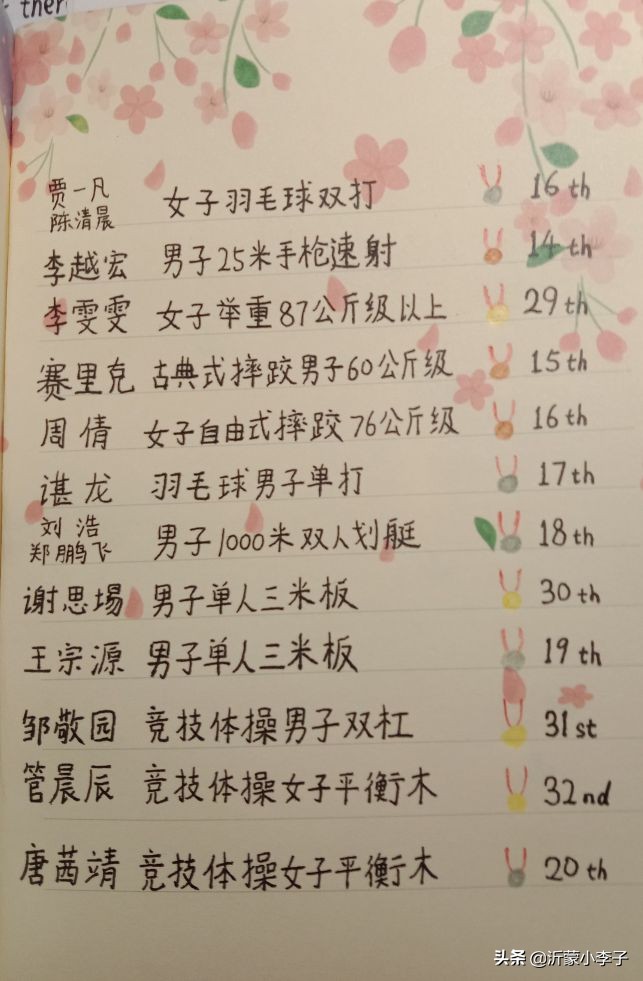 ther
贾一凡
陈清晨 女子羽毛球双打 16th
李越宏 男子25米手枪速射 14th
李雯雯 女子举重87公斤级以上 29th
赛里克 古典式摔跤男子60公斤级 15th
周倩 女子自由式摔跤76公斤级 16th
谌龙 羽毛球男子单打 17th
刘浩
郑鹏飞 男子1000米双人划艇 18th
谢思埸 男子单人三米板 30th
王宗源 男子单人三米板 19th
邹敬园 竞技体操男子双杠 31st
管晨辰 竞技体操女子平衡木 32nd
唐茜靖 竞技体操女子平衡木 20th
头条 @沂蒙小李子